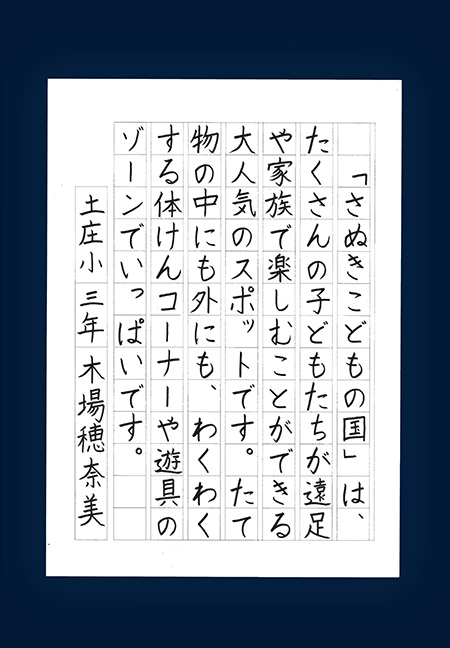 「さぬきこどもの国」は、
たくさんの子どもたちが遠足
や家族で楽しむことができる
大人気のスポットです。たて
物の中にも外にも、わくわく
する体けんコーナーや遊具の
ゾーンでいっぱいです。
土庄小 三年 木場穂奈美